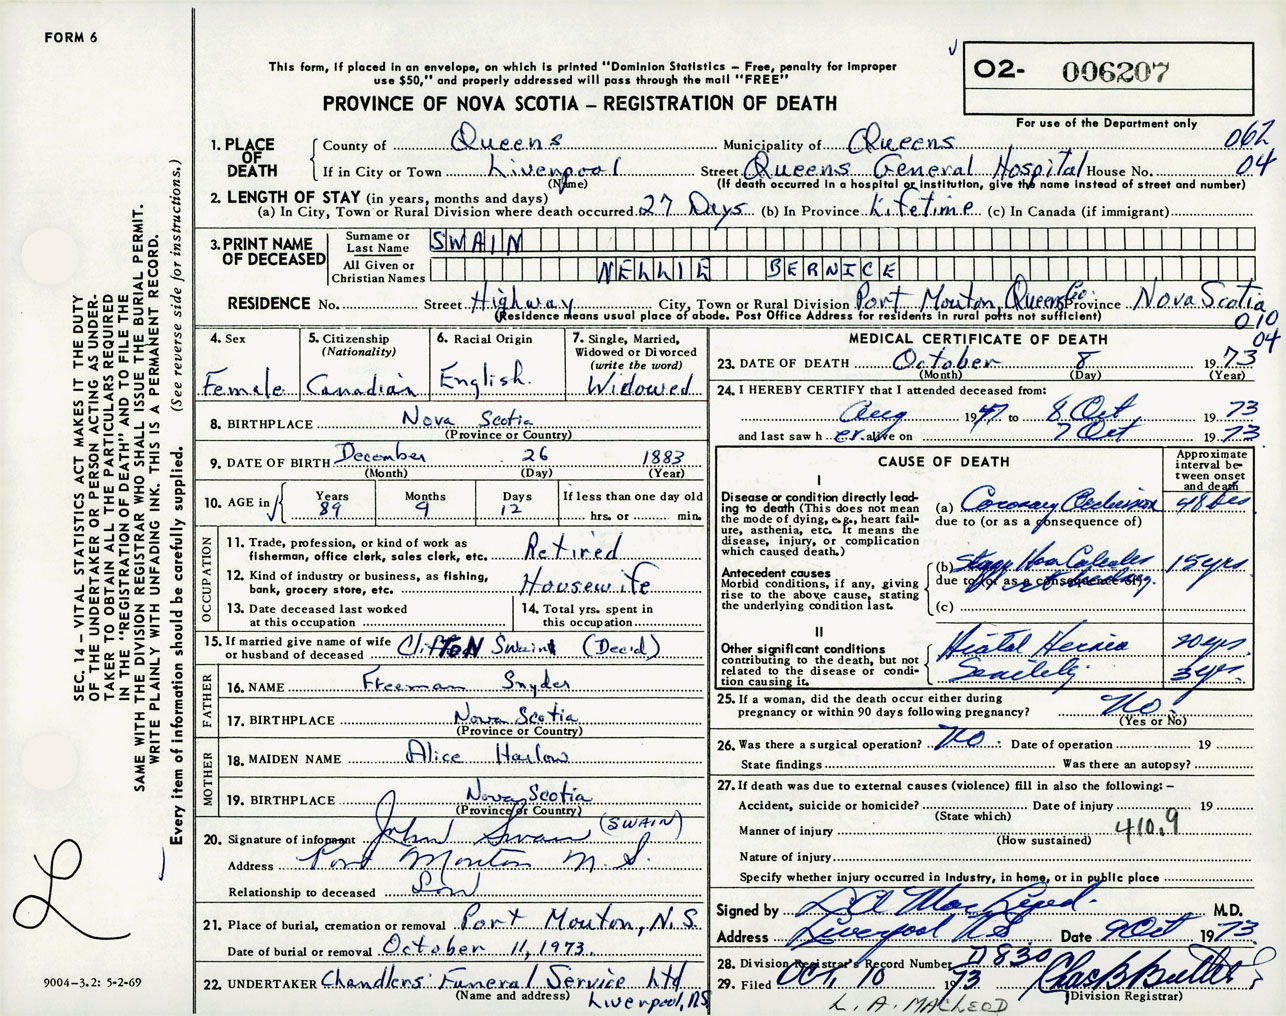 FORM 6
This form, if placed in an envelope, on which is printed "Dominion Statistics – Free, penalty for improper
use $50," and properly addressed will pass through the mail "FREE"
PROVINCE OF NOVA SCOTIA – REGISTRATION OF DEATH
O2- 006207
For use of the Department only
062
04
1. PLACE OF DEATH
County of Queens Municipality of Queens
If in City or Town Liverpool Street Queens General Hospital House No.
(Name) (If death occurred in a hospital or institution, give the name instead of street and number)
2. LENGTH OF STAY (in years, months and days)
(a) In City, Town or Rural Division where death occurred 27 Days (b) In Province Lifetime (c) In Canada (if immigrant)
3. PRINT NAME OF DECEASED
Surname or Last Name SWAIN
All Given or Christian Names NELLIE BERNICE
RESIDENCE No. Street Highway City, Town or Rural Division Port Mouton, Queens Co. Province Nova Scotia
(Residence means usual place of abode. Post Office Address for residents in rural parts not sufficient)
010
04
4. Sex Female
5. Citizenship (Nationality) Canadian
6. Racial Origin English
7. Single, Married, Widowed or Divorced (write the word) Widowed
8. BIRTHPLACE Nova Scotia
(Province or Country)
9. DATE OF BIRTH December 26 1883
(Month) (Day) (Year)
10. AGE in Years 89 Months 9 Days 12 If less than one day old hrs. or min.
OCCUPATION
11. Trade, profession, or kind of work as fisherman, office clerk, sales clerk, etc. Retired
12. Kind of industry or business, as fishing, bank, grocery store, etc. Housewife
13. Date deceased last worked at this occupation
14. Total yrs. spent in this occupation
15. If married give name of wife or husband of deceased Clifton Swain (Dec'd)
FATHER
16. NAME Freeman Snyder
17. BIRTHPLACE Nova Scotia
(Province or Country)
MOTHER
18. MAIDEN NAME Alice Harlow
19. BIRTHPLACE Nova Scotia
(Province or Country)
20. Signature of informant John Swain (SWAIN)
Address Port Mouton N.S.
Relationship to deceased Son
21. Place of burial, cremation or removal Port Mouton, N.S.
Date of burial or removal October 11, 1973.
22. UNDERTAKER Chandlers' Funeral Service Ltd
(Name and address) Liverpool, NS
MEDICAL CERTIFICATE OF DEATH
23. DATE OF DEATH October 8 1973
(Month) (Day) (Year)
24. I HEREBY CERTIFY that I attended deceased from:
Aug 1947 to 8 Oct 1973
and last saw h er alive on 7 Oct 1973
CAUSE OF DEATH
Approximate interval between onset and death
I
Disease or condition directly leading to death (This does not
the mode of dying, e.g., heart failure, asthenia, etc. It means the
disease, injury, or complication
which caused death.)
(a) Coronary Occlusion 48 hrs
due to (or as a consequence of)
Antecedent causes
Morbid conditions, if any, giving
rise to the above cause, stating
the underlying condition last.
(b) 15 yrs
due to (or as a consequence of)
(c)
II
Other significant conditions
contributing to the death, but not
related to the disease or condition causing it.
Hiatal Hernia 20 yrs.
Senility 3 yrs.
25. If a woman, did the death occur either during
pregnancy or within 90 days following pregnancy? No
(Yes or No)
26. Was there a surgical operation? No. Date of operation 19
State findings Was there an autopsy?
27. If death was due to external causes (violence) fill in also the following: –
Accident, suicide or homicide? Date of injury 19
(State which)
410.9
Manner of injury
(How sustained)
Nature of injury
Specify whether injury occurred in industry, in home, or in public place
Signed by L A MacLeod. M.D.
Address Liverpool NS Date 9 Oct 1973
28. Division Registrar's Record Number D830
29. Filed Oct, 10 1973 Chas B Butler
(Division Registrar)
L. A. MACLEOD
SEC. 14 – VITAL STATISTICS ACT MAKES IT THE DUTY
OF THE UNDERTAKER OR PERSON ACTING AS UNDERTAKER TO OBTAIN ALL THE PARTICULARS REQUIRED
IN THE "REGISTRATION OF DEATH" AND TO FILE THE
SAME WITH THE DIVISION REGISTRAR WHO SHALL ISSUE THE BURIAL PERMIT.
WRITE PLAINLY WITH UNFADING INK. THIS IS A PERMANENT RECORD.
Every item of information should be carefully supplied. (See reverse side for instructions.)
9004-3.2: 5-2-69